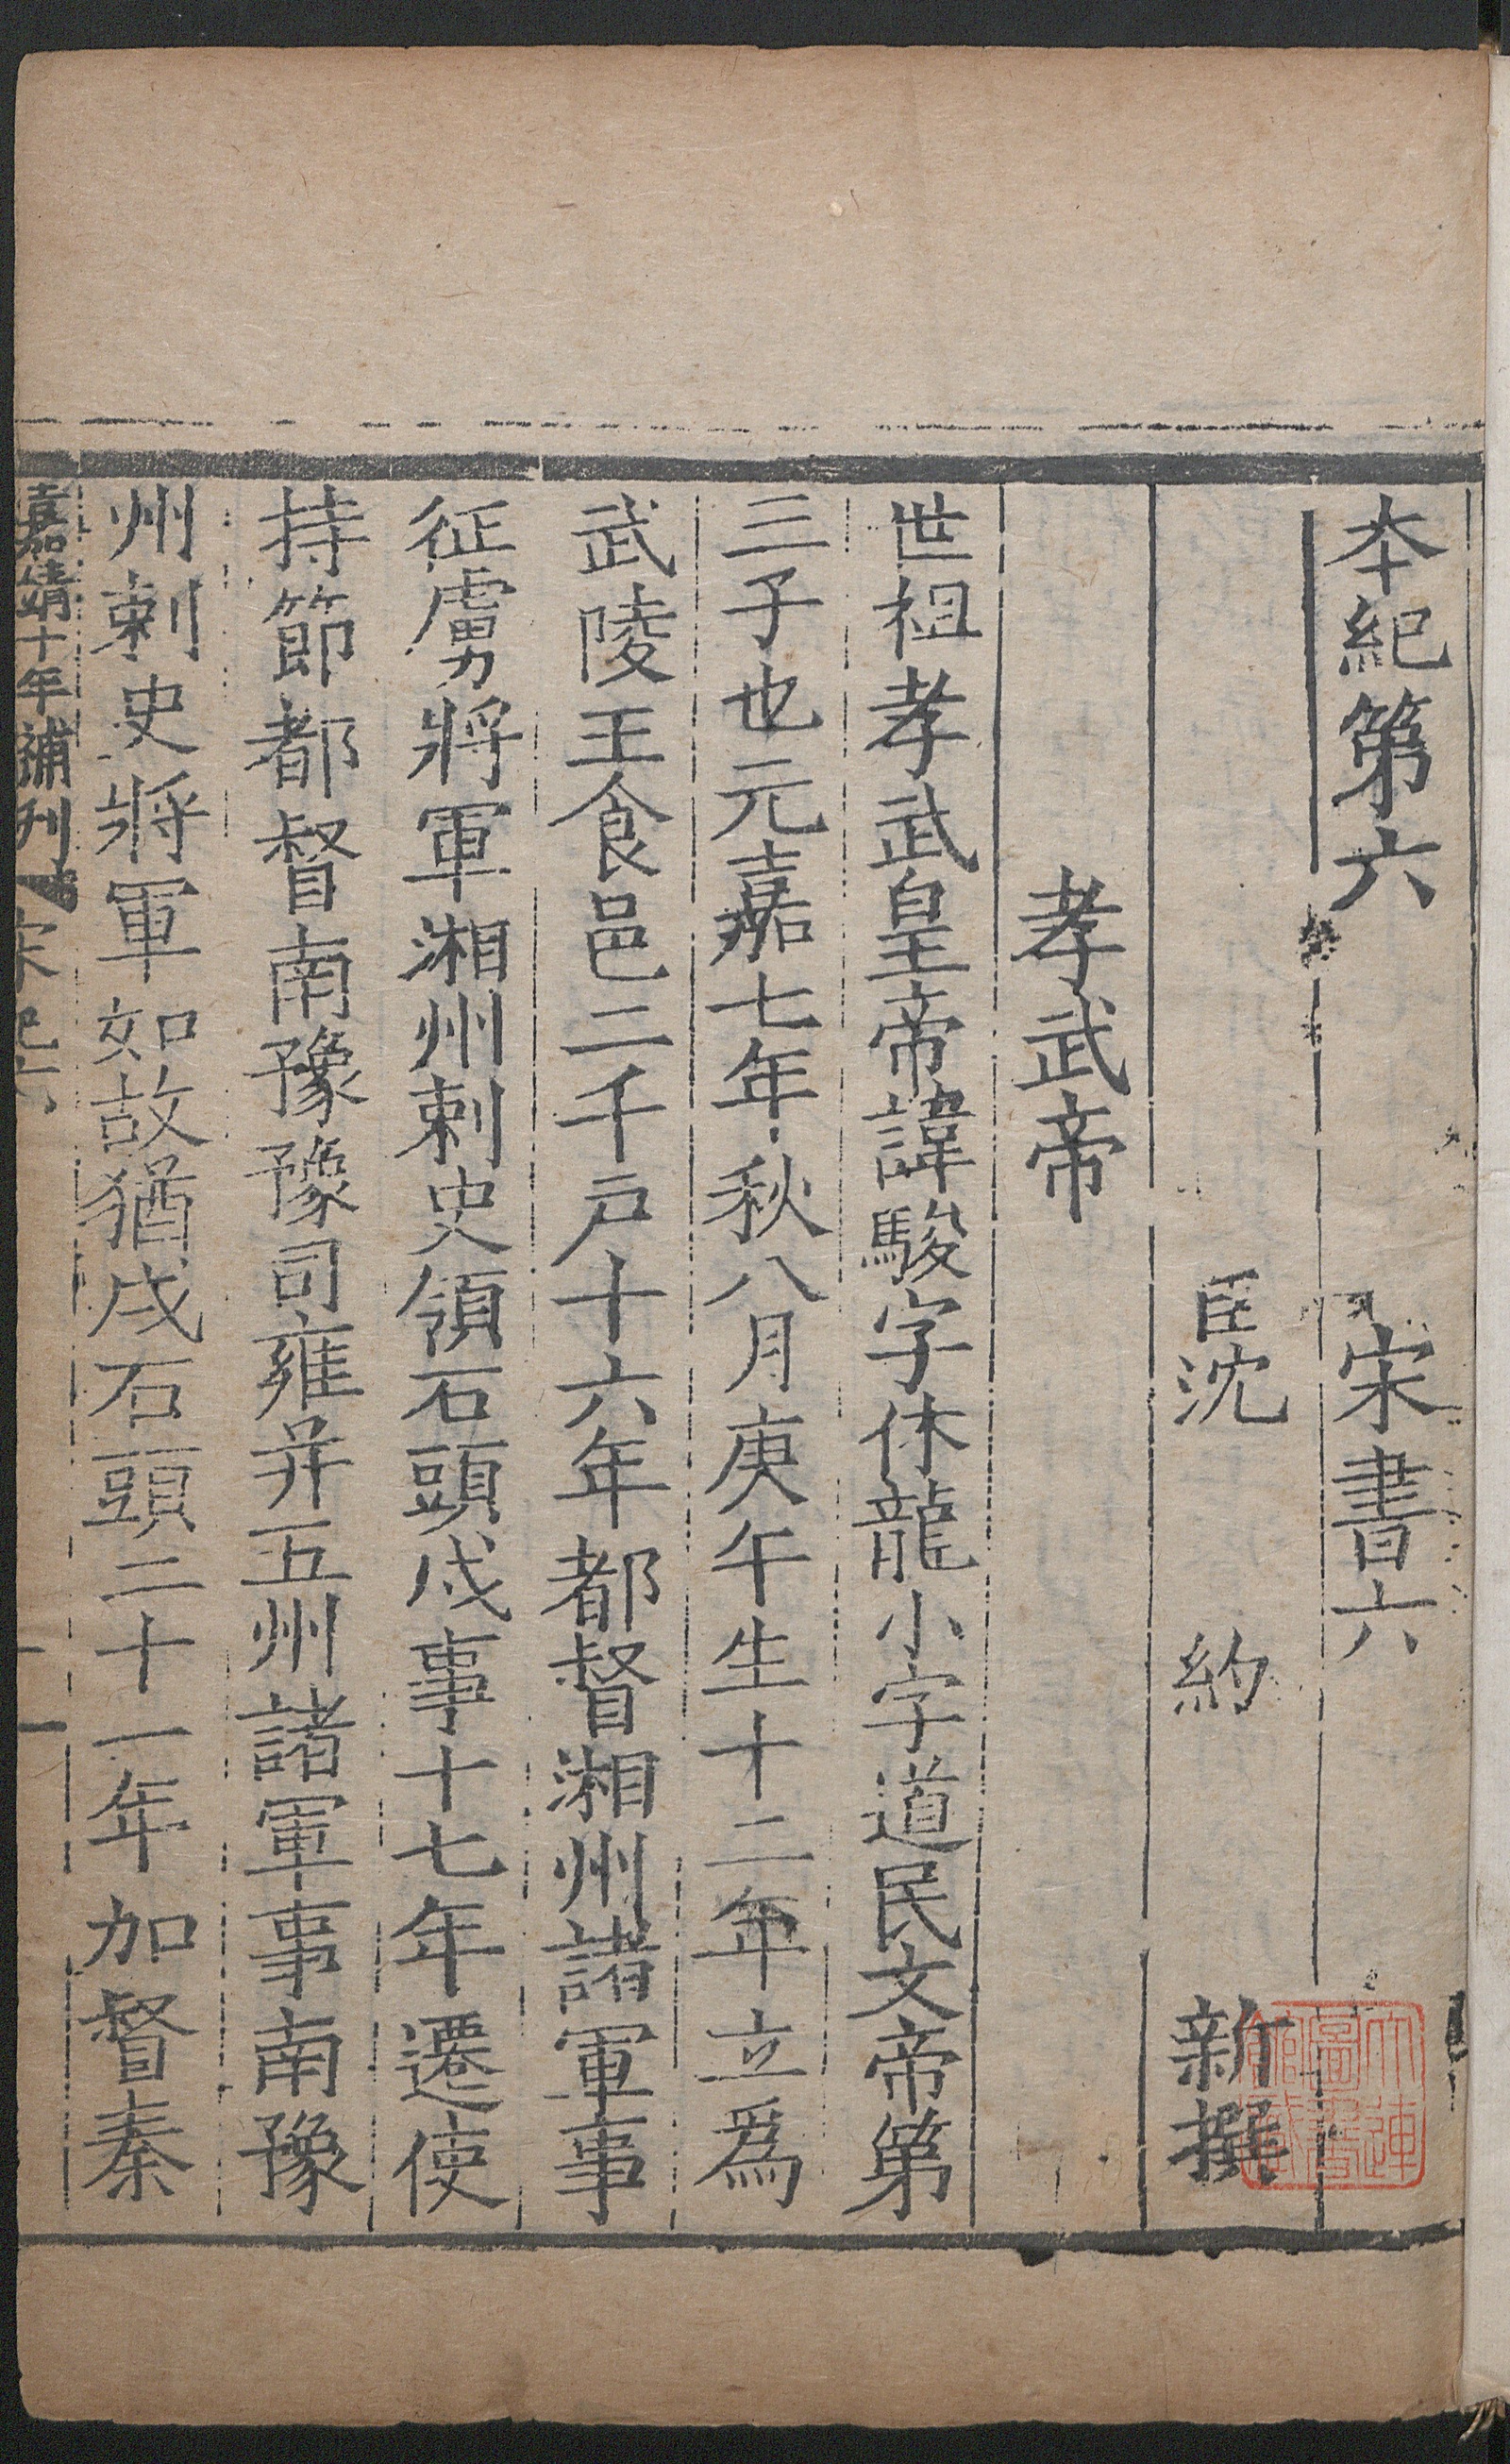 本紀第六　宋書六
臣沈　約　新撰
孝武帝
世祖孝武皇帝諱駿字休龍小字道民文帝第
三子也元嘉七年秋八月庚午生十二年立爲
武陵王食邑二千戸十六年都督湘州諸軍事
征虜將軍湘州刺史領石頭戍事十七年遷使
持節都督南豫豫司雍并五州諸軍事南豫
州刺史將軍如故猶戍石頭二十一年加督秦
嘉靖十年補刊　宋紀六　一
大連圖書館藏